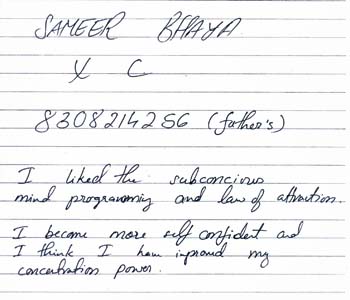 SAMEER BHAYA
X C
8308214256 (father's)
I liked the subconcious
mind programming and law of attraction.
I become more self confident and
I think I have improved my
concentration power.